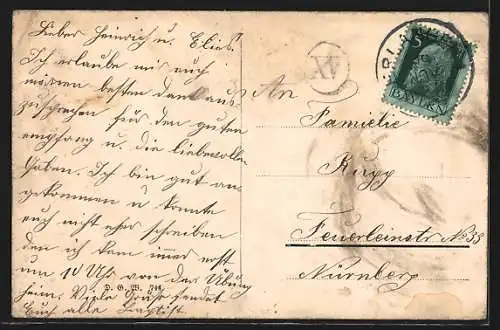 Lieber Heinrich u. Elise!
Ich erlaube mir euch
meinen besten Dank aus-
zusprechen für den guten
empfang u. die liebevollen
Gaben. Ich bin gut an
gekommen u konnte
euch nicht eher schreiben
den ich kam immer erst
um 10 Uhr von der Übung
heim. Viele Grüße sendet
Euch alle
D. G. W. M.
An
Familie
Rupp
Feuerleinstr No 33
Nürnberg
XV
5
BAYERN